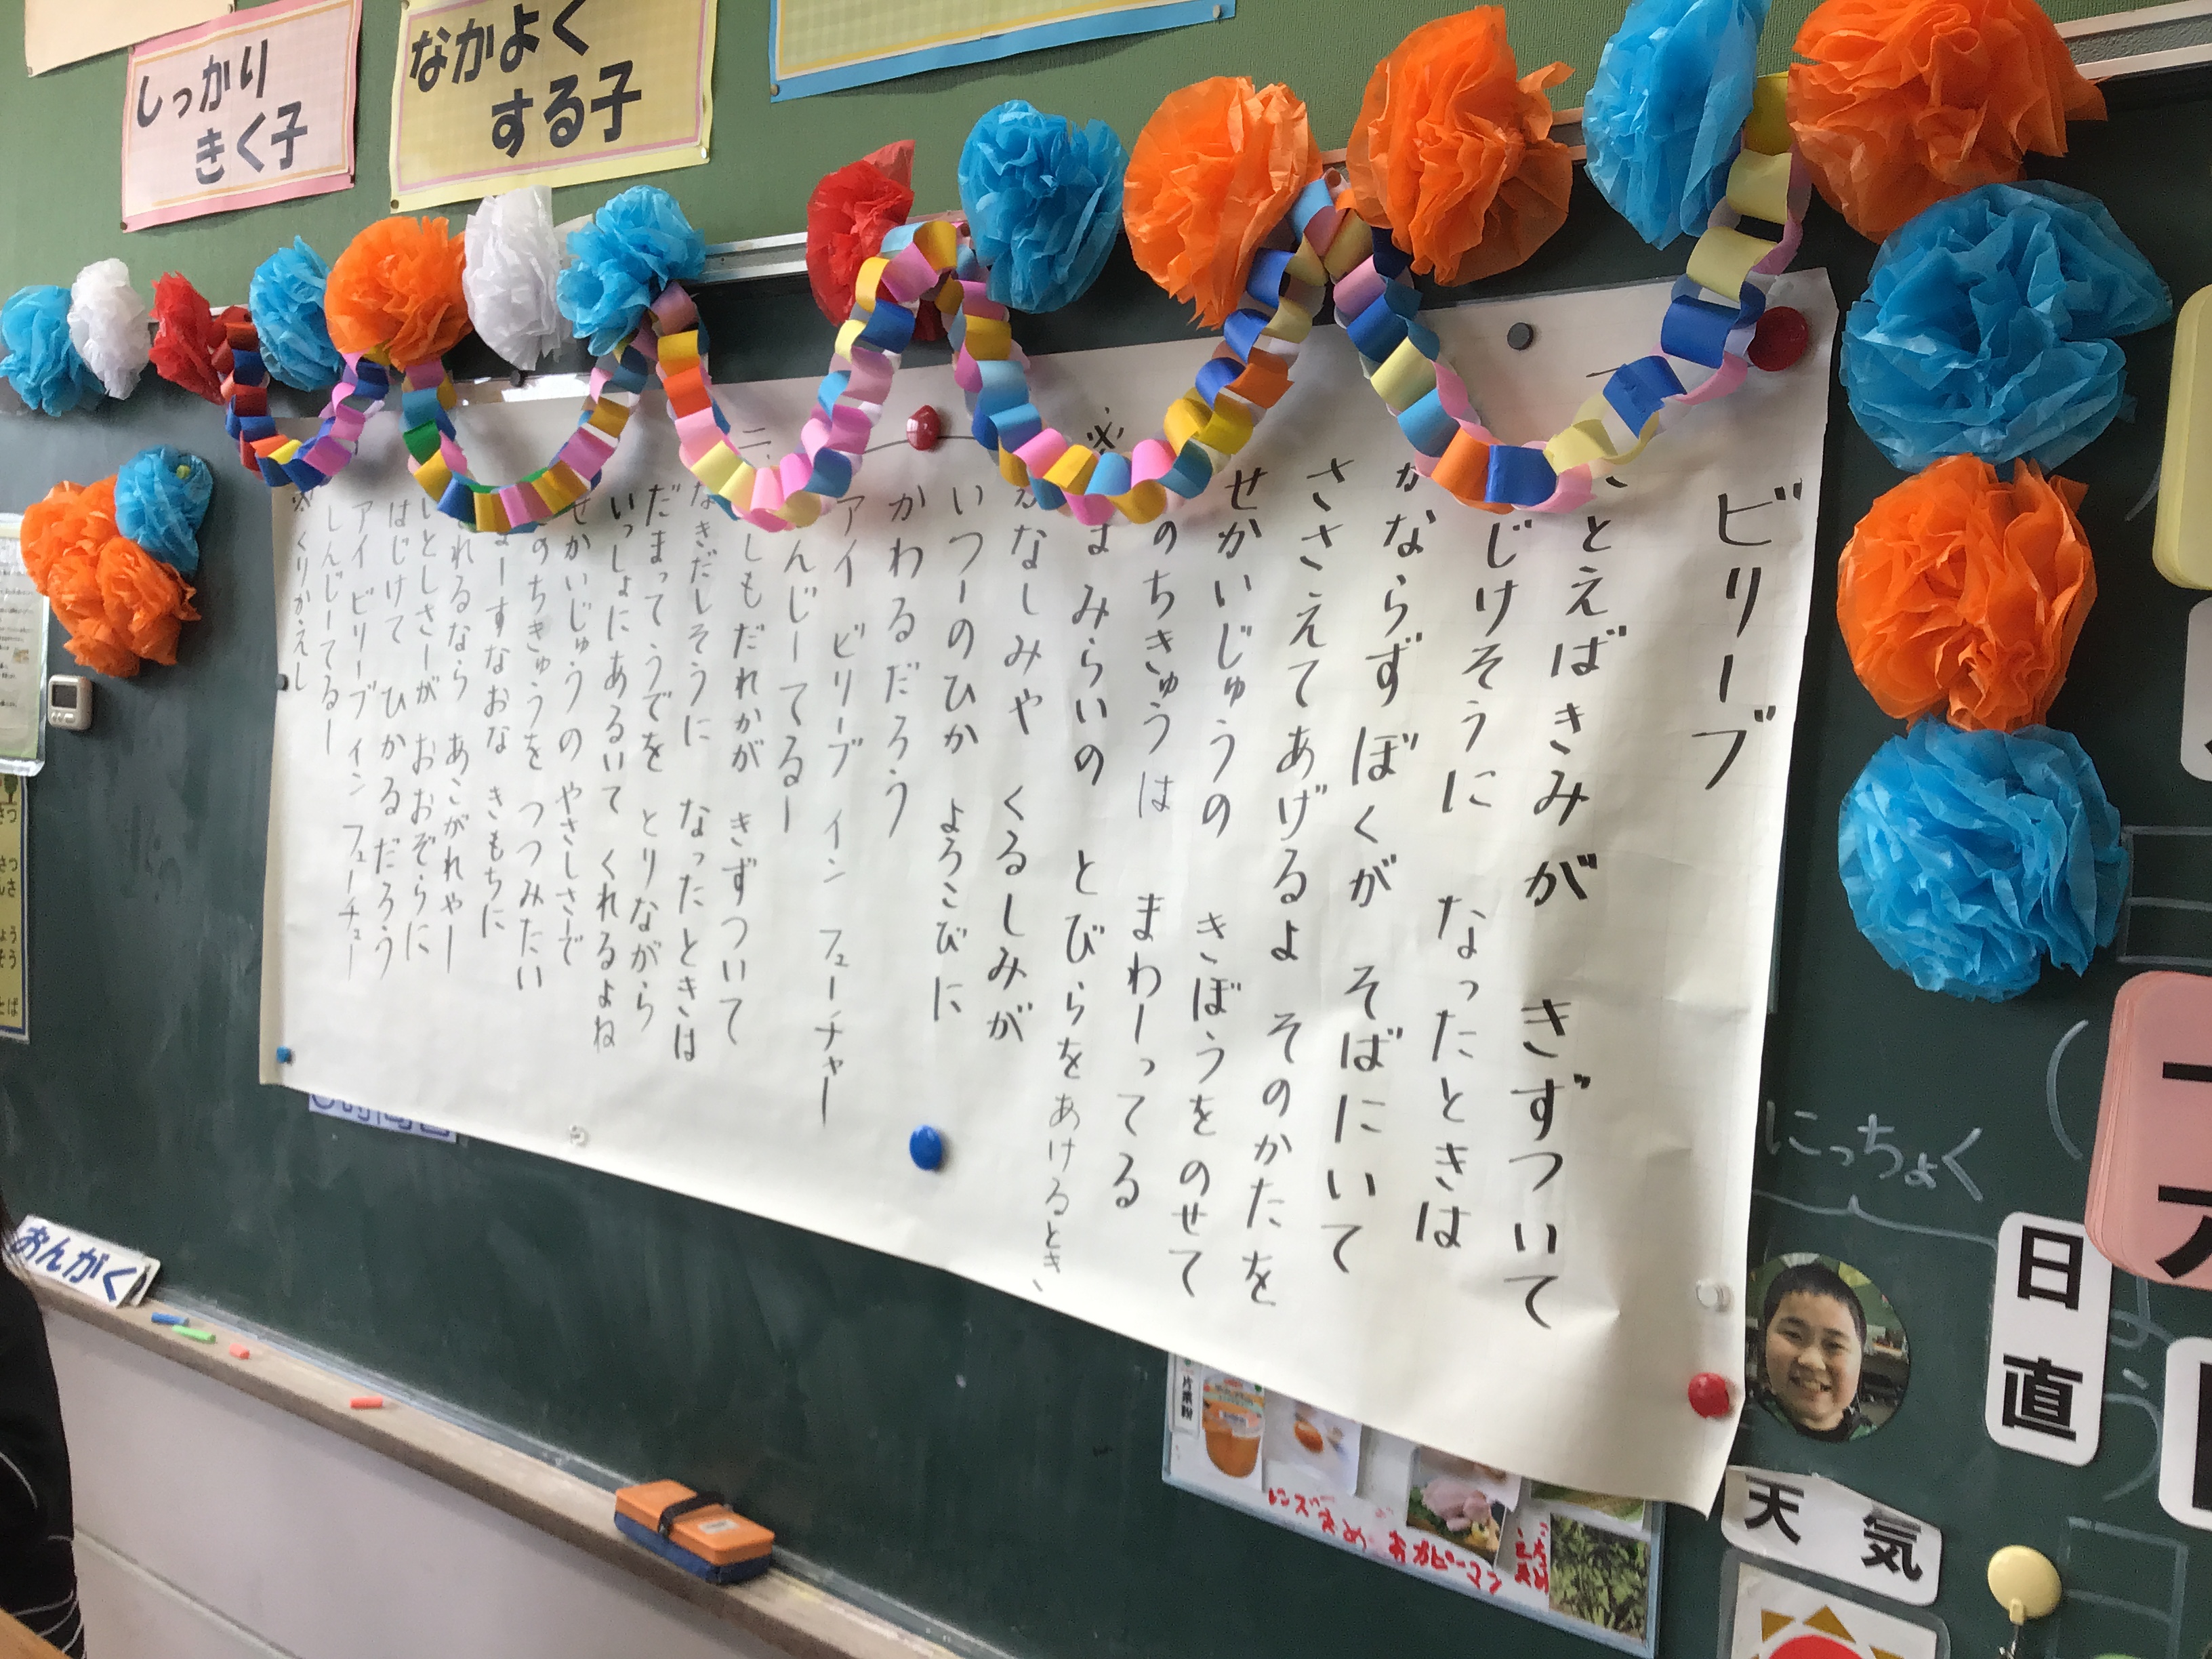 しっかり
きく子
なかよく
する子
ビリーブ
とえばきみが きずついて
じけそうに なったときは
かならずぼくが そばにいて
ささえてあげるよ そのかたを
せかいじゅうの きぼうをのせて
のちきゅうは まわーってる
※
まみらいの とびらをあけるとき、
かなしみや くるしみが
いつーのひか よろこびに
かわるだろう
アイ ビリーブ イン フューチャー
んじーてるー
二、
しもだれかが きずついて
なきだしそうに なったときは
だまってうでを とりながら
いっしょにあるいて くれるよね
せかいじゅうの やさしさーで
のちきゅうを つつみたい
まーすなおな きもちに
れるなら あこがれやー
いとしさーが おおぞらに
はじけて ひかるだろう
アイ ビリーブ イン フューチュー
しんじーてるー
※くりかえし
おんがく
にっちょく
日直
天気
片栗粉
おかピーマン